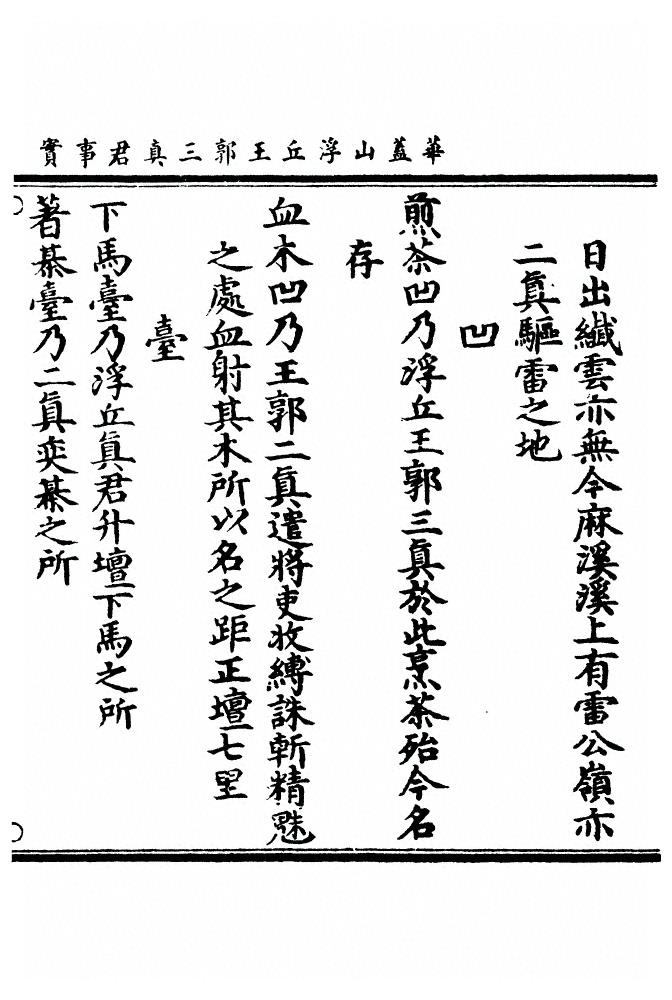 華蓋山浮丘王郭三真君事實
日出纎雲亦無今麻溪溪上有雷公嶺亦
二眞驅雷之地
凹
煎茶凹乃浮丘王郭三眞於此烹茶殆今名
存
血木凹乃王郭二眞遣將吏收縛誅斬精魅
之處血射其木所以名之距正壇七里
臺
下馬臺乃浮丘眞君升壇下馬之所
著棊臺乃二眞奕棊之所